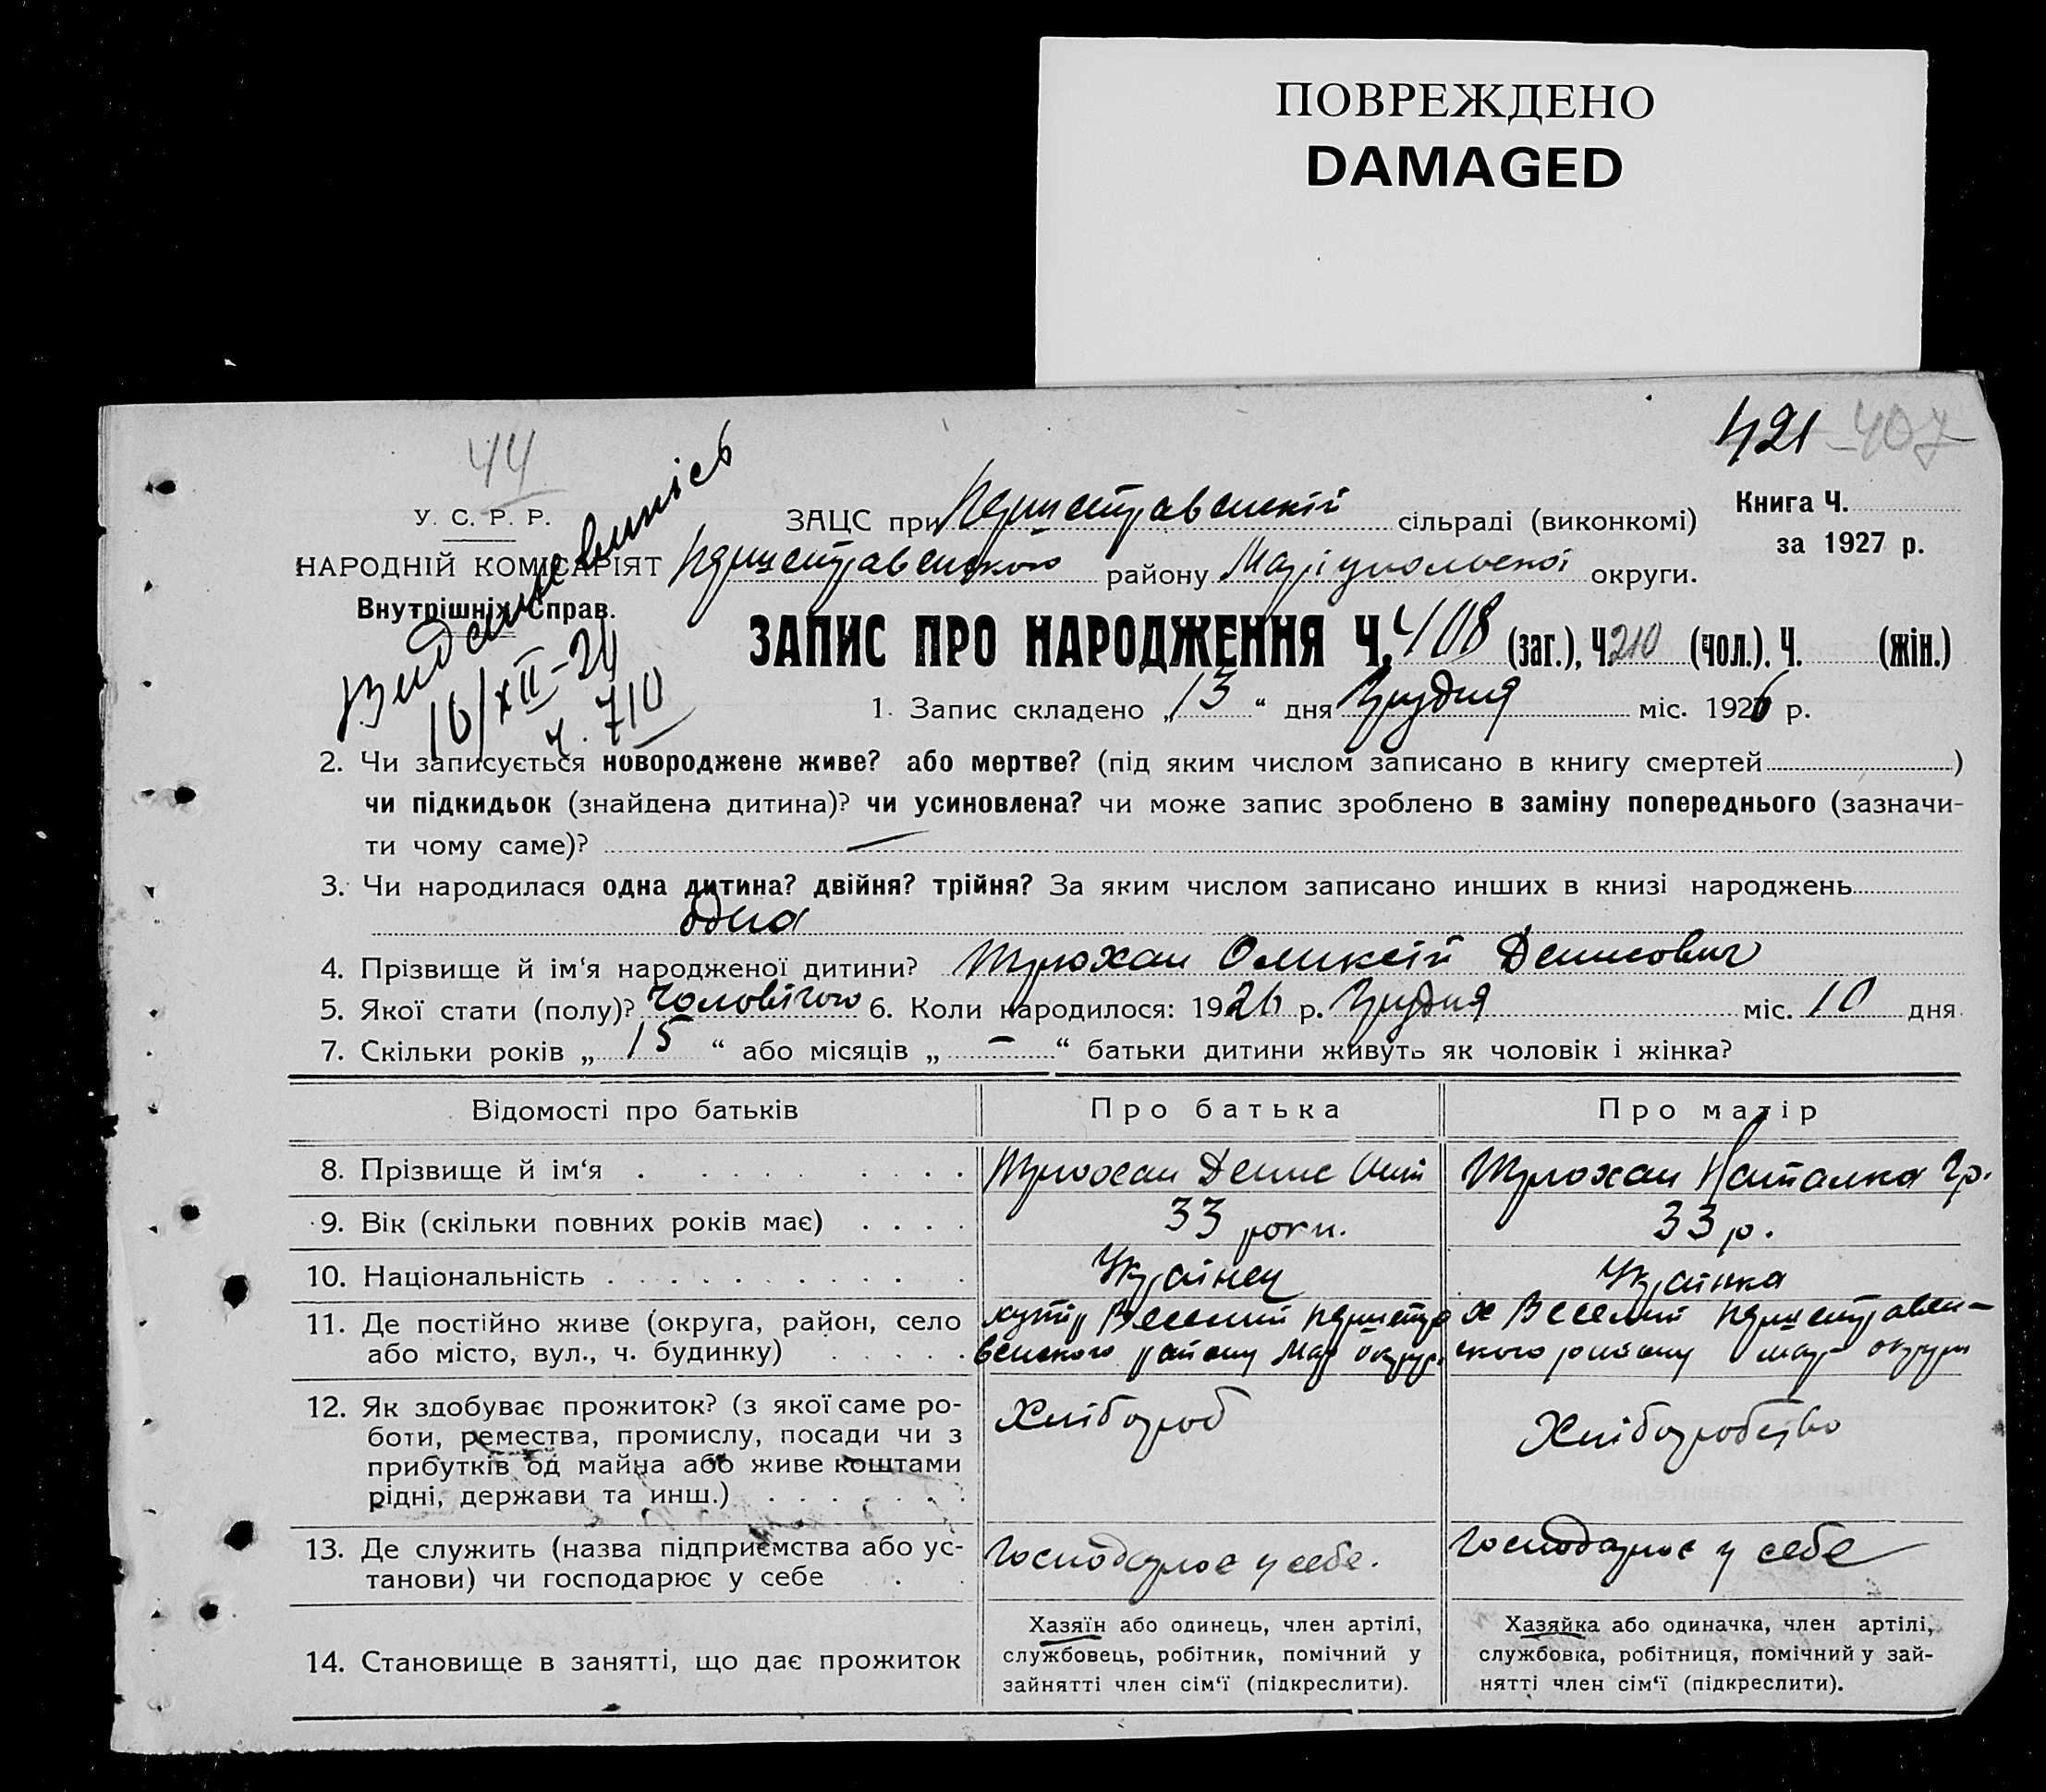 ПОВРЕЖДЕНО
DAMAGED
421 407
44
У. С. Р. Р.
НАРОДНІЙ КОМІСАРІЯТ
Внутрішніх Справ.
Видано випись
16/XII-26
ч. 710
Книга Ч.
за 1927 р.
ЗАЦС при Першетравенскій сільраді (виконкомі)
Першетравенского району Маріупольскої округи.
ЗАПИС ПРО НАРОДЖЕННЯ Ч. 408 (заг.), Ч. 210 (чол.). Ч. (жін.)
1. Запис складено „ 13 “ дня Грудня міс. 1926 р.
2. Чи записується новороджене живе? або мертве? (під яким числом записано в книгу смертей )
чи підкидьок (знайдена дитина)? чи усиновлена? чи може запис зроблено в заміну попереднього (зазначи-
ти чому саме)? —
3. Чи народилася одна дитина? двійня? трійня? За яким числом записано инших в книзі народжень
одна
4. Прізвище й ім‘я народженої дитини? Трюхан Оликсій Денисович
5. Якої стати (полу)? чоловічого 6. Коли народилося: 1926 р. Грудня міс. 10 дня
7. Скільки років „ 15 “ або місяців „ — “ батьки дитини живуть як чоловік і жінка?
Відомості про батьків Про батька Про матір
8. Прізвище й ім‘я Трюхан Денис Трюхан Наталка Гр.
9. Вік (скільки повних років має) 33 роки. 33 р.
10. Національність Українец Українка
11. Де постійно живе (округа, район, село Веселий Першетра х Веселий Першетравен-
або місто, вул., ч. будинку) венского району Мар округи ского району мар округи
12. Як здобуває прожиток? (з якої саме ро- Хлібороб Хліборобство
боти, ремества, промислу, посади чи з
прибутків од майна або живе коштами
рідні, держави та инш.)
13. Де служить (назва підприємства або ус- Господарює у себе. Господарює у себе
танови) чи господарює у себе
14. Становище в занятті, що дає прожиток
Хазяїн або одинець, член артілі,
службовець, робітник, помічний у
зайнятті член сім‘ї (підкреслити).
Хазяйка або одиначка, член артілі,
службовка, робітниця, помічний у зай-
нятті член сім‘ї (підкреслити).